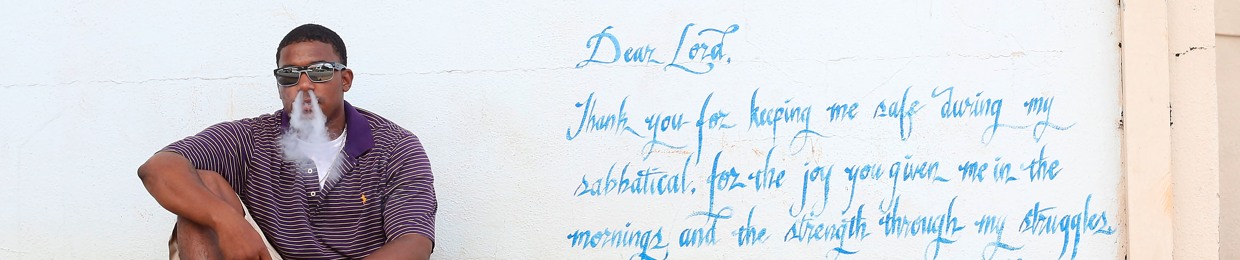 Dear Lord,
Thank you for keeping me safe during my
sabbatical, for the joy you given me in the
mornings and the strength through my struggles.